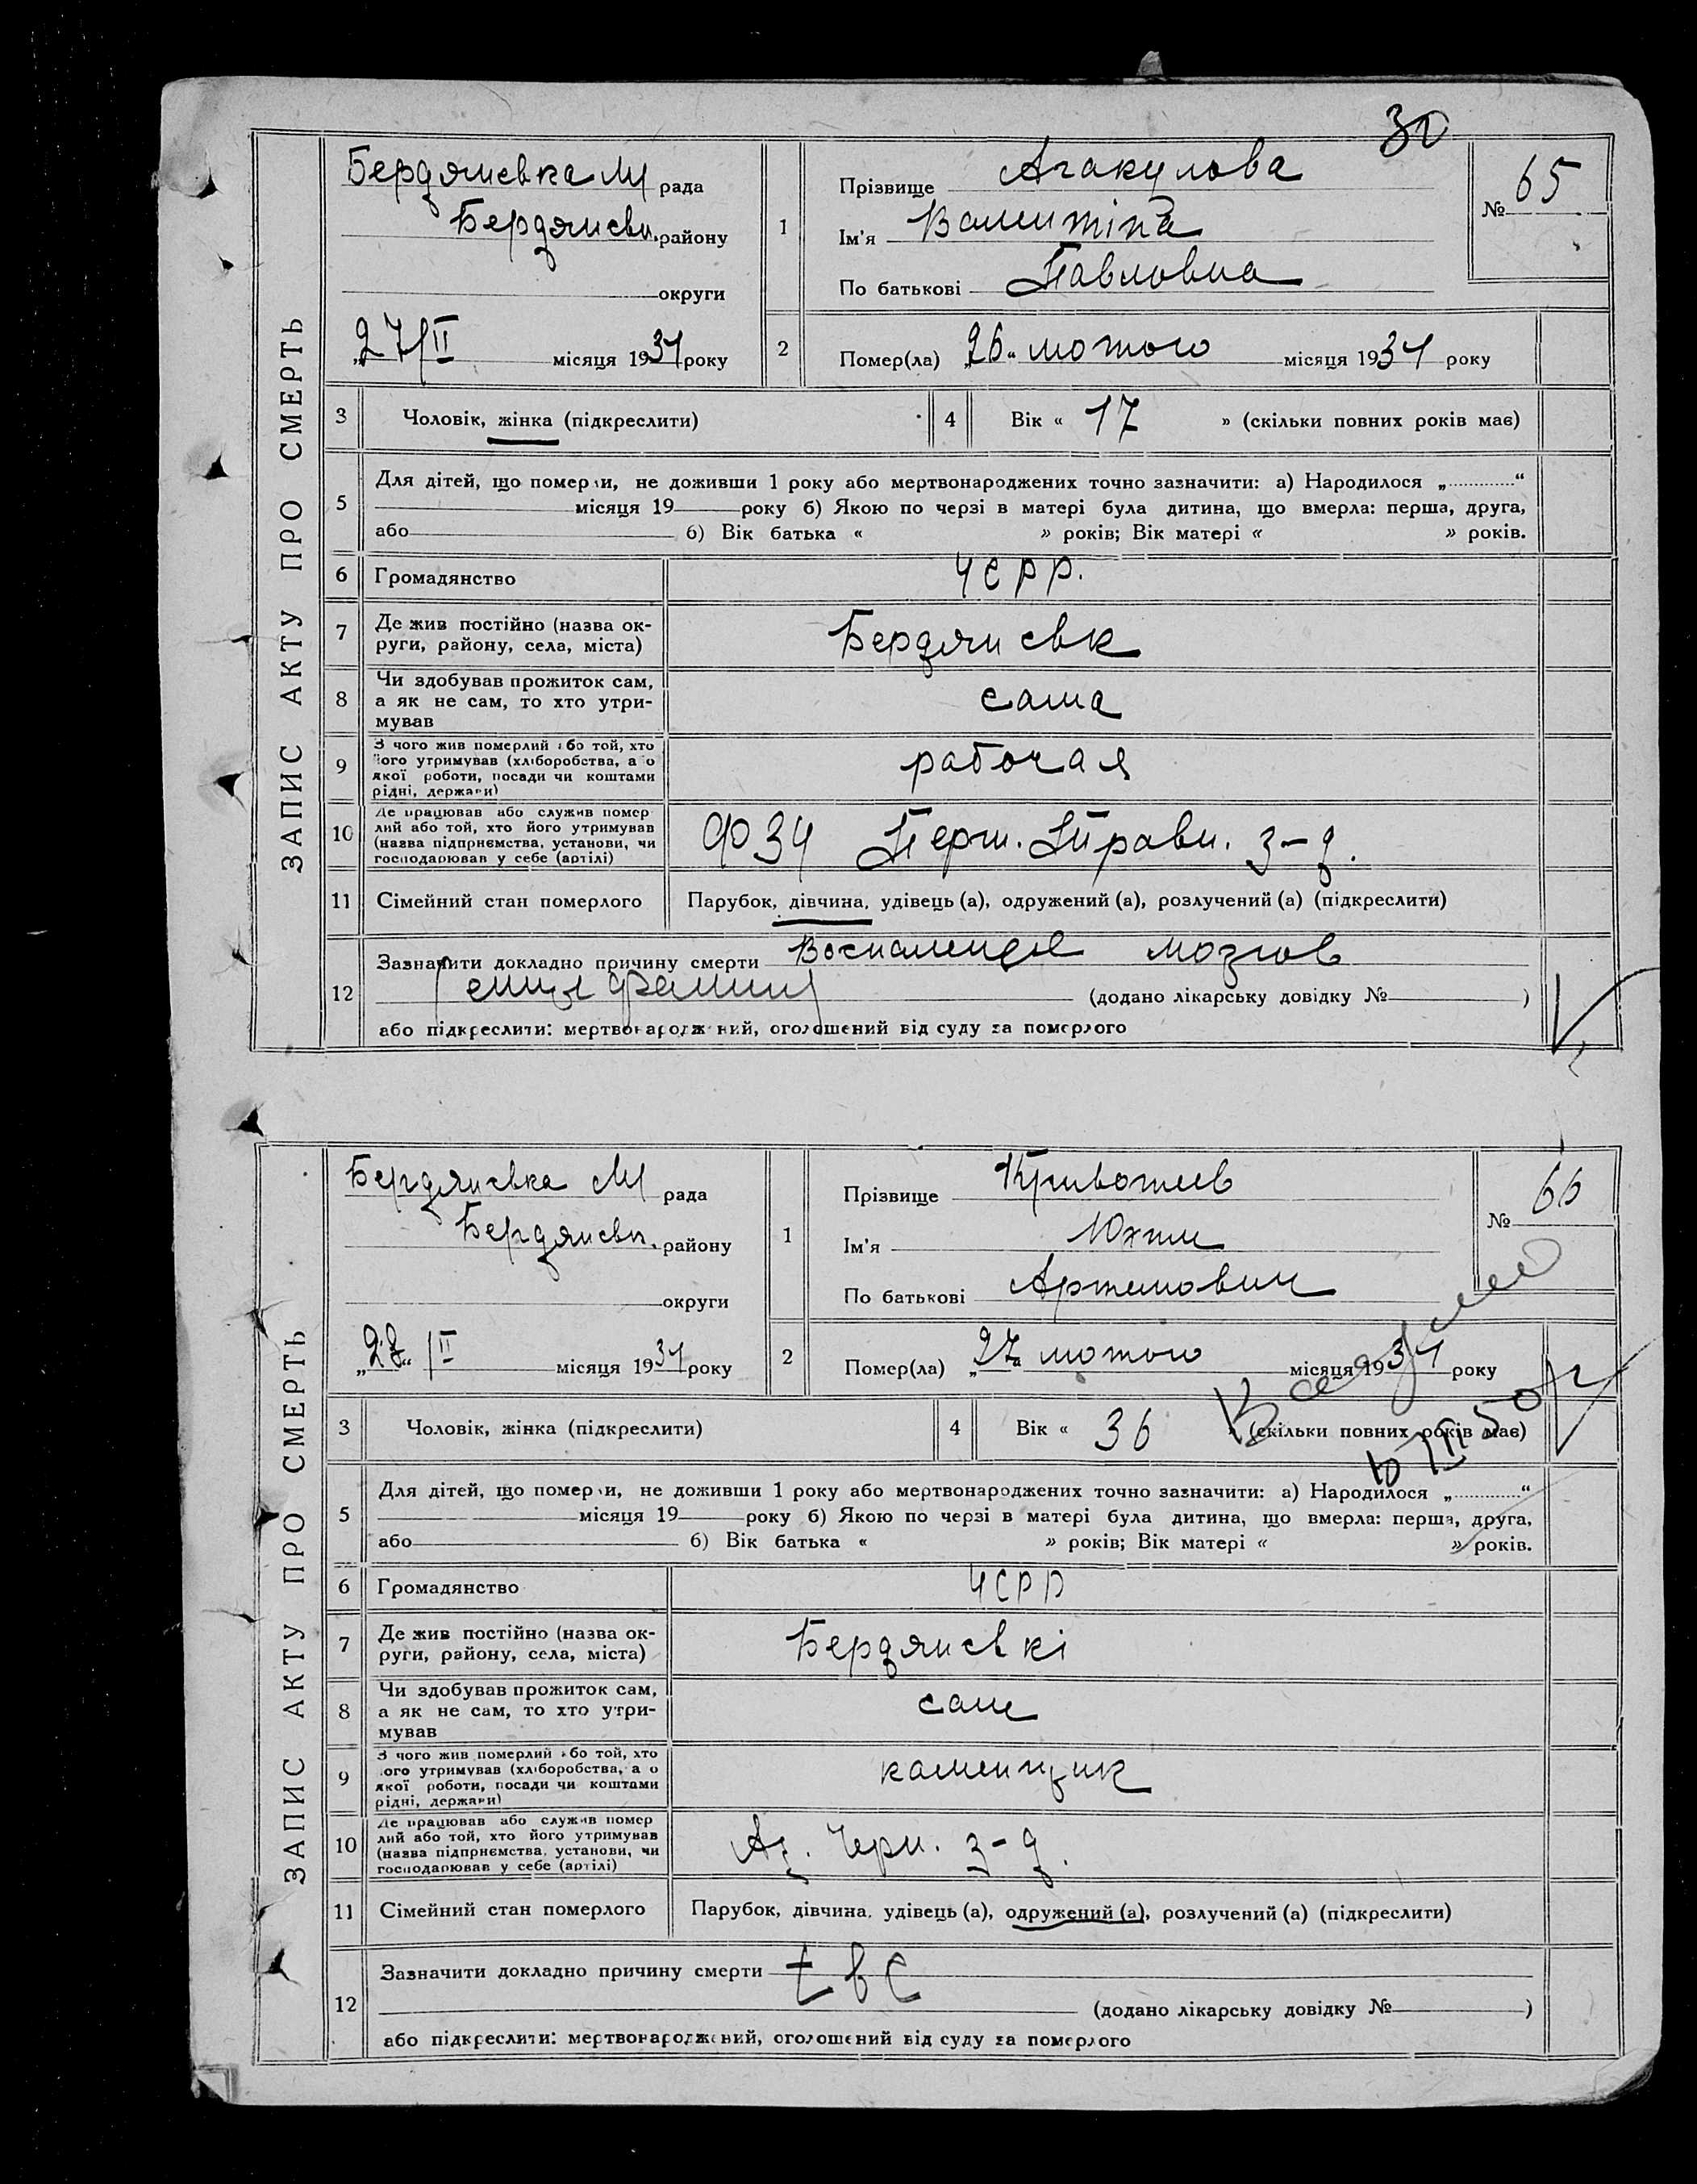 30
ЗАПИС АКТУ ПРО СМЕРТЬ
Бердянська М рада
Бердянськ. району
округи
27/II місяця 1934 року
1
Прізвище Агакулова
Ім'я Валентіна
По батькові Павловна
№ 65
2
Помер(ла) „26" лютого місяця 1934 року
3 Чоловік, жінка (підкреслити)
4 Вік « 17 » (скільки повних років має)
5
Для дітей, що померли, не доживши 1 року або мертвонароджених точно зазначити: а) Народилося „ “
місяця 19 року б) Якою по черзі в матері була дитина, що вмерла: перша, друга,
або б) Вік батька « » років; Вік матері « » років.
6 Громадянство УСРР.
7 Де жив постійно (назва ок-
руги, району, села, міста)
Бердянськ
8 Чи здобував прожиток сам,
а як не сам, то хто утри-
мував
сама
9 З чого жив померлий або той, хто
його утримував (хліборобства, або
якої роботи, посади чи коштами
рідні, держави)
рабочая
10 Де працював або служив помер
лий або той, хто його утримував
(назва підприємства, установи, чи
господарював у себе (артілі)
Перш. Травн. з-д.
11 Сімейний стан померлого
Парубок, дівчина, удівець (а), одружений (а), розлучений (а) (підкреслити)
12
Зазначити докладно причину смерти мозгов
(додано лікарську довідку № )
або підкреслити: мертвонароджений, оголошений від суду за померлого
ЗАПИС АКТУ ПРО СМЕРТЬ
Бердянська М рада
Бердянськ. району
округи
„28" /II місяця 1934 року
1
Прізвище
Ім'я Юхим
По батькові Артемович
№ 66
2
Помер(ла) „27" лютого місяця 1934 року
3 Чоловік, жінка (підкреслити)
4 Вік « 36 » (скільки повних років має)
5
Для дітей, що померли, не доживши 1 року або мертвонароджених точно зазначити: а) Народилося „ “
місяця 19 року б) Якою по черзі в матері була дитина, що вмерла: перша, друга,
або б) Вік батька « » років; Вік матері « » років.
6 Громадянство УСРР
7 Де жив постійно (назва ок-
руги, району, села, міста)
Бердянські
8 Чи здобував прожиток сам,
а як не сам, то хто утри-
мував
сам
9 З чого жив померлий або той, хто
його утримував (хліборобства, або
якої роботи, посади чи коштами
рідні, держави)
каменщик
10 Де працював або служив помер
лий або той, хто його утримував
(назва підприємства, установи, чи
господарював у себе (артілі)
Аз. Черн. з-д.
11 Сімейний стан померлого
Парубок, дівчина, удівець (а), одружений (а), розлучений (а) (підкреслити)
12
Зазначити докладно причину смерти tbc
(додано лікарську довідку № )
або підкреслити: мертвонароджений, оголошений від суду за померлого